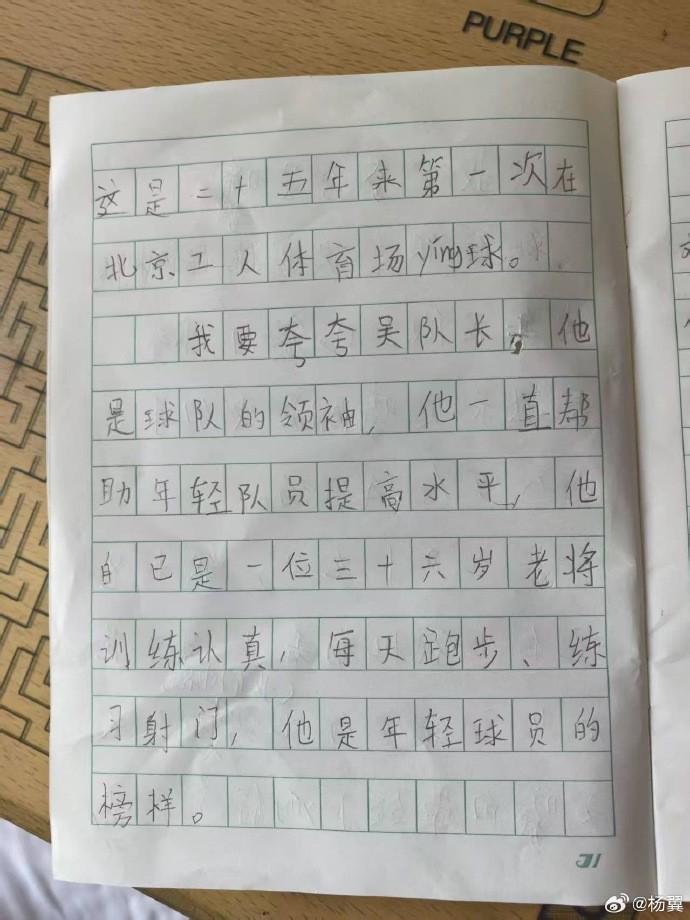 PURPLE
这是二十五年来第一次在
北京工人体育场ying球。
我要夸夸吴队长，他
是球队的领袖，他一直帮
助年轻队员提高水平，他
自已是一位三十六岁老将
训练认真，每天跑步、练
习射门，他是年轻球员的
榜样。
31
@杨翼